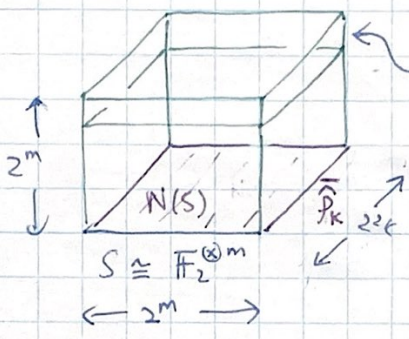 2^m
N(S)
P̄_K
2^{2k}
S ≅ 𝔽_2^{(x)m}
2^m